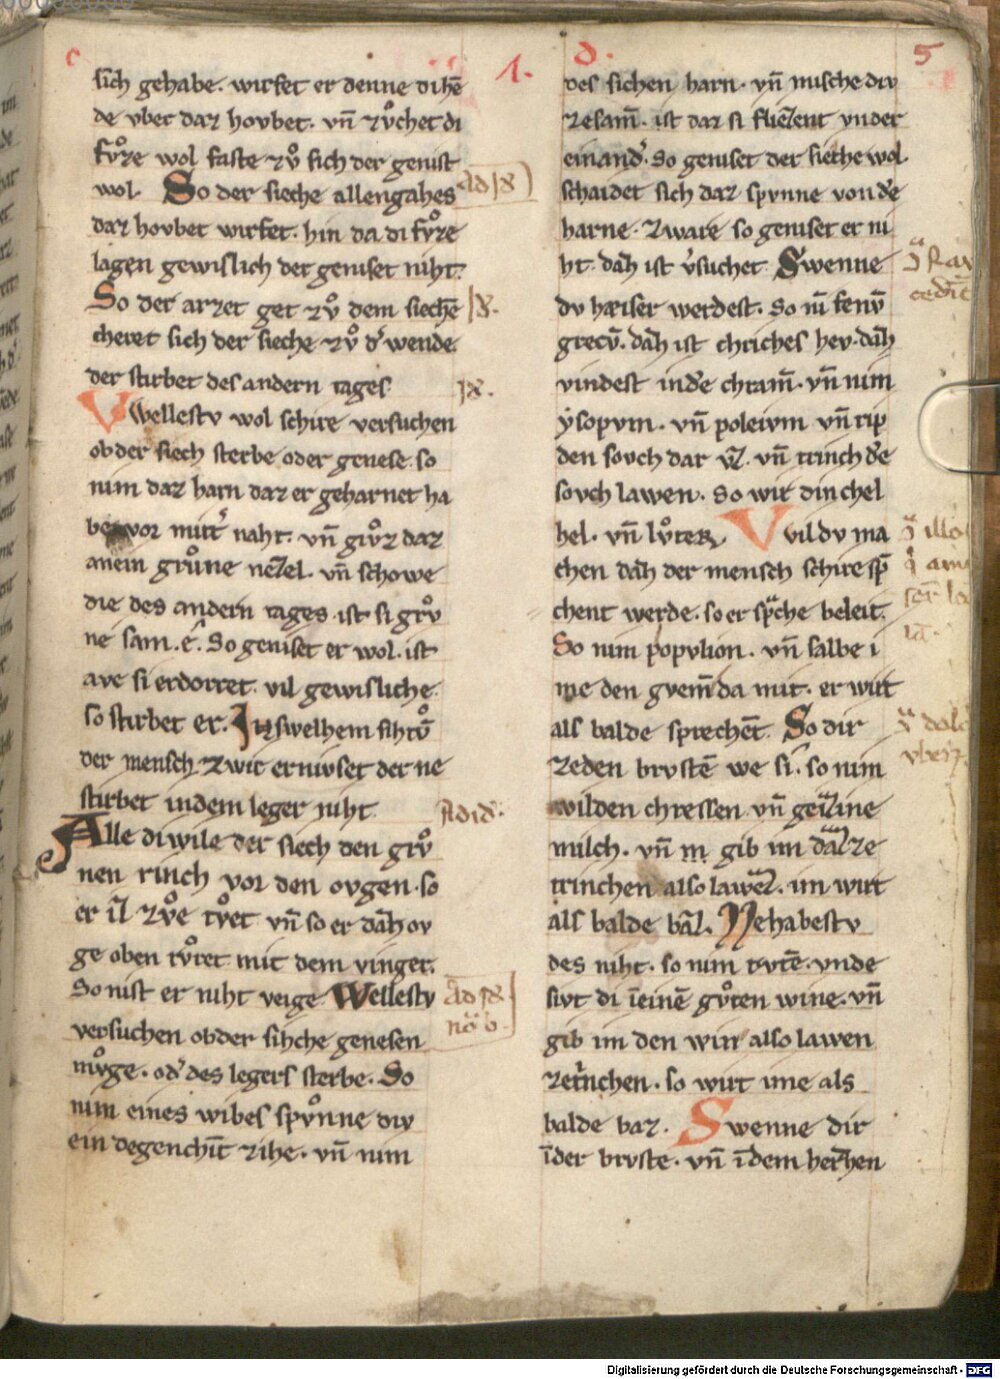 c
1.
d.
5
sich gehabe. wirfet er denne di hē
de vber daz hovbet. vn̄ zvͦchet di
fvͦze wol faste zvͦ sich der genist
wol. So der sieche allengahes
daz hovbet wirfet. hin da di fvͦze
lagen gewislich der geniset niht.
So der arzet get zvͦ dem siechē
cheret sich der sieche zvͦ dˀ wende.
der stirbet des andern tages
Wellestv wol schire versuchen
ob der siech sterbe oder genese. so
nim daz harn daz er geharnet ha
be vor mittˀ naht. vn̄ givͦz daz
an ein grvͦne nezzel. vn̄ schowe
die des andern tages. ist si grvͦ
ne sam. ê. So geniset er wol. ist
ave si erdorret. vil gewisliche
so stirbet er. In swelhem sihtvͦ
der mensch zwir ernivset der ne
stirbet in dem leger niht
Alle di wile der siech den grvͦ
nen rinch vor den ovgen. so
er zvͦe tvͦet vn̄ so er dāh ov
ge oben rvͦret mit dem vinger.
So nist er niht veige. Wellestv
versuchen ob der sihche genesen
mvͦge. odˀ des legers sterbe. So
nim eines wibes spvͦnne div
ein degenchīt zihe. vn̄ nim
des sichen harn. vn̄ mische div
zesam̄. ist daz si fliezzent vnder
ein andˀ. So geniset der sieche wol.
schaidet sich daz spvnne von dē
harne. zware so geniset er ni
ht. dāh ist vˀsuchet. Swenne
dv hæiser werdest. So nī fenv̄
grecv̄. dāh ist chriches hev. dāh
vindest in dē chram̄. vn̄ nim
ẏsopvm. vn̄ poleivm vn̄ rip
den sovch dar vz. vn̄ trinch dē
sovch lawen. So wirt din chel
hel. vn̄ lvͦter. Wil dv ma
chen dāh der mensch schire sp̄
chent werde. so er sp̄che beleit.
So nim popvlion. vn̄ salbe i
me den gvem̄ da mit. er wirt
als balde sprechēt. So dir
zeden brvstē we si. so nim
wilden chressen vn̄ geizzine
milch. vn̄ gib im daz ze
trinchen also lawez. im wirt
als balde baz. Nehabestv
des niht. so nim rvtē. vnde
sivt di ī einē gvͦten wine. vn̄
gib im den win also lawen
zetˀnchen. so wirt ime als
balde baz. Swenne dir
ī der brvste. vn̄ ī dem herzhen
Digitalisierung gefördert durch die Deutsche Forschungsgemeinschaft - DFG